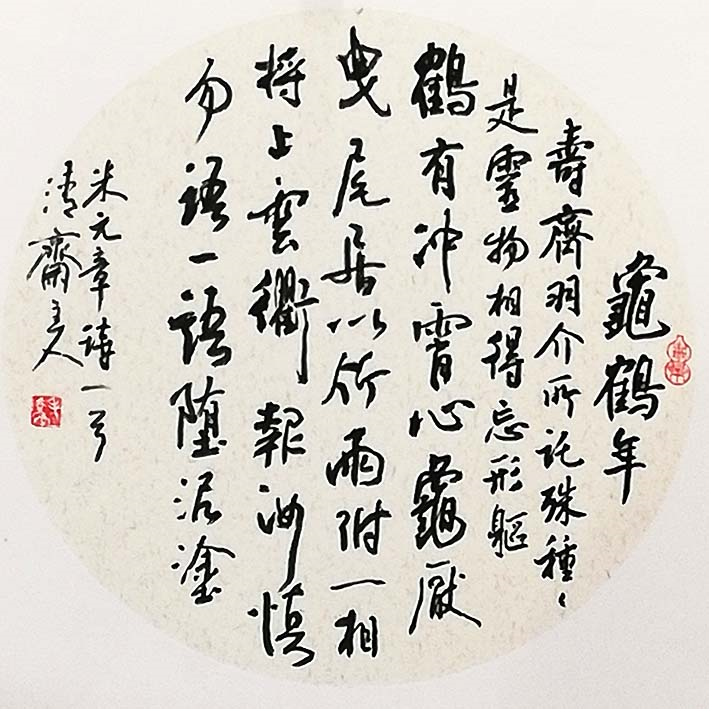 龜鶴年
壽齊羽介所託殊種々
是靈物相得忘形軀
鶴有冲霄心龜厭
曳尾居以竹兩附一相
将上雲衢報汝慎
勿語一語墮泥塗
米元章詩一首
清齋主人